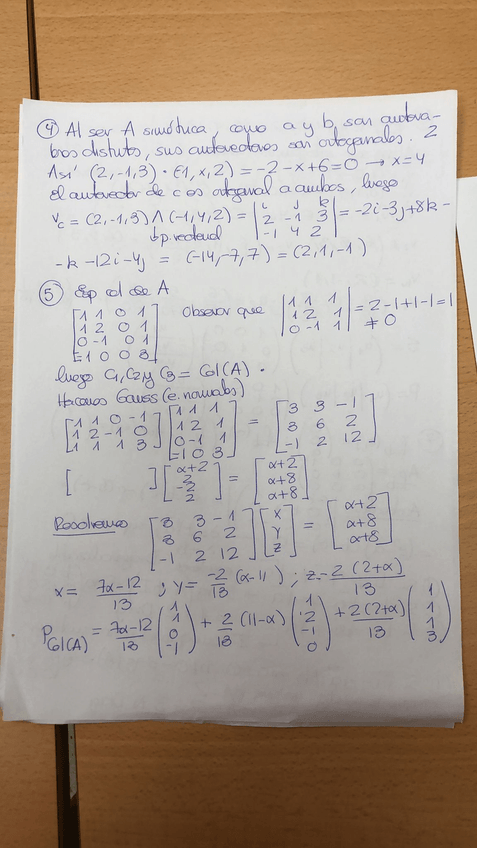 ④ Al ser A simétrica, como a y b son autova-
lores distintos, sus autovectores son ortogonales. 2
Así (2,-1,3) · (-1,x,2) = -2 - x + 6 = 0 → x = 4
El autovector de c es ortogonal a ambos, luego
Vc = (2,-1,3) ∧ (-1,4,2) = | i j k | = -2i - 3j + 8k -
| 2 -1 3 |
| -1 4 2 |
↳ p. vectorial
- k - 12i - 4j = (-14,-7,7) = (2,1,-1)
⑤ Esp col de A
[ 1 1 0 1 ] Observar que | 1 1 1 | = 2-1+1-1=1
[ 1 2 0 1 ] | 1 2 1 | ≠ 0
[ 0 -1 0 1 ] | 0 -1 1 |
[ -1 0 0 3 ]
luego C1, C2 y C3 = Col(A).
Hacemos Gauss (e. normales)
[ 1 1 0 -1 ] [ 1 1 1 ] = [ 3 3 -1 ]
[ 1 2 -1 0 ] [ 1 2 1 ] [ 3 6 2 ]
[ 1 1 1 3 ] [ 0 -1 1 ] [ -1 2 12 ]
[ -1 0 3 ]
[ ] [ α+2 ] = [ α+2 ]
[ 2 ] [ α+8 ]
[ -2 ] [ α+8 ]
[ 2 ]
Resolvemos [ 3 3 -1 ] [ x ] = [ α+2 ]
[ 3 6 2 ] [ y ] [ α+8 ]
[ -1 2 12 ] [ z ] [ α+8 ]
x = 7α-12/13 ; y = -2/13 (α-11) ; z = 2(2+α)/13
P Col(A) = 7α-12/13 (1 1 0 -1) + 2/13 (11-α) (1 2 -1 0) + 2(2+α)/13 (1 1 1 3)